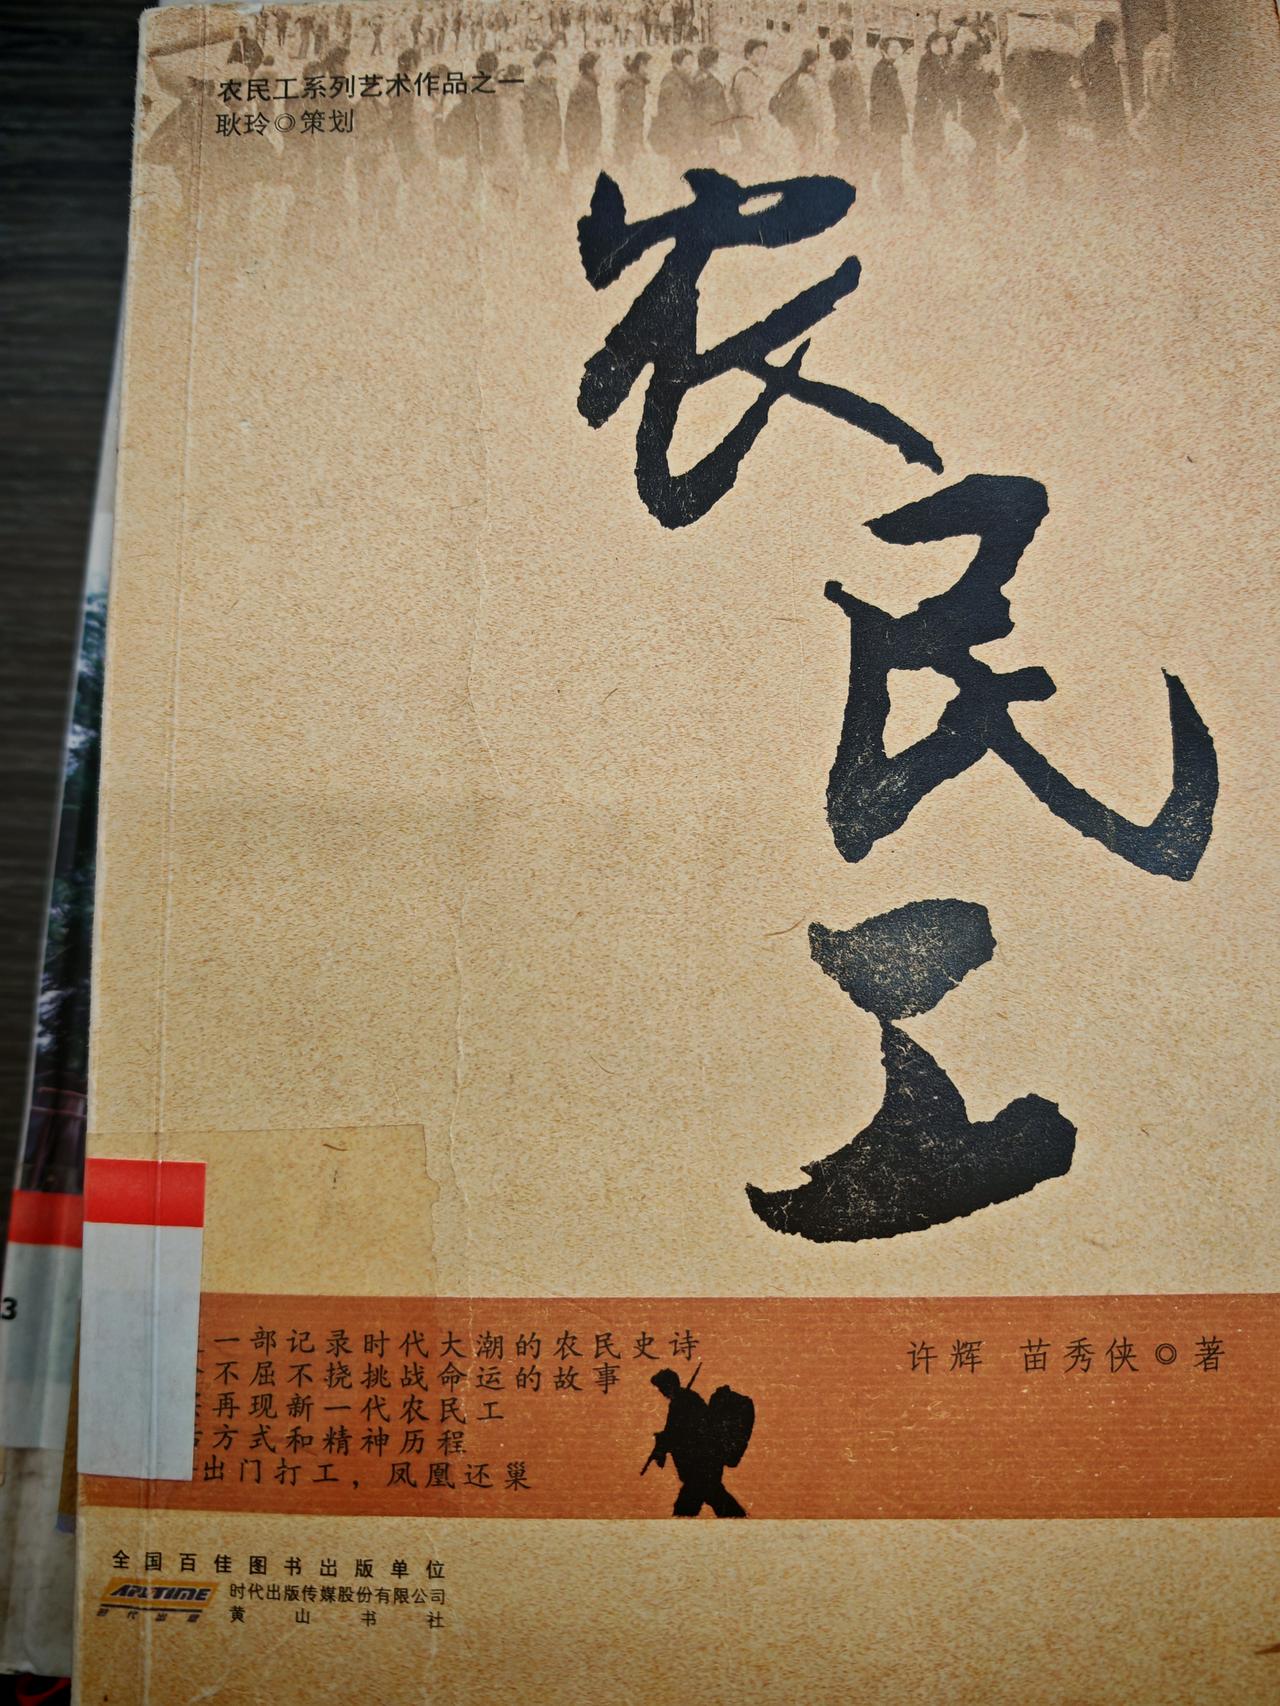 农民工系列艺术作品之一
耿玲◎策划
农民工
一部记录时代大潮的农民史诗
不屈不挠挑战命运的故事
再现新一代农民工
方式和精神历程
出门打工，凤凰还巢
许辉 苗秀侠◎著
全国百佳图书出版单位
ARTTIME
时代出版
时代出版传媒股份有限公司
黄山书社
3